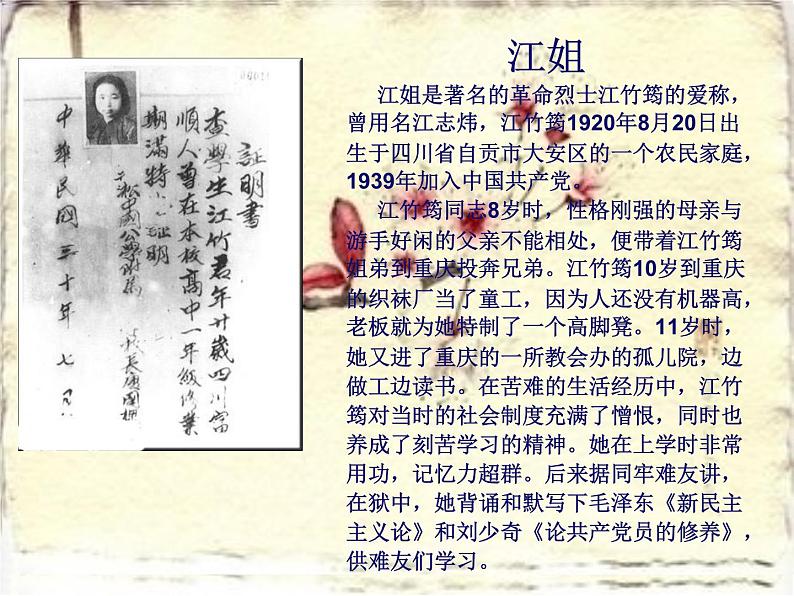 江姐
江姐是著名的革命烈士江竹筠的爱称，
曾用名江志炜，江竹筠1920年8月20日出
生于四川省自贡市大安区的一个农民家庭，
1939年加入中国共产党。
江竹筠同志8岁时，性格刚强的母亲与
游手好闲的父亲不能相处，便带着江竹筠
姐弟到重庆投奔兄弟。江竹筠10岁到重庆
的织袜厂当了童工，因为人还没有机器高，
老板就为她特制了一个高脚凳。11岁时，
她又进了重庆的一所教会办的孤儿院，边
做工边读书。在苦难的生活经历中，江竹
筠对当时的社会制度充满了憎恨，同时也
养成了刻苦学习的精神。她在上学时非常
用功，记忆力超群。后来据同牢难友讲，
在狱中，她背诵和默写下毛泽东《新民主
主义论》和刘少奇《论共产党员的修养》，
供难友们学习。
証明書
查學生江竹君年廿歲四川富
順人曾在本校高中一年級修業
期滿特此証明
淞中國公學附屬
校長
中華民國三十年七月